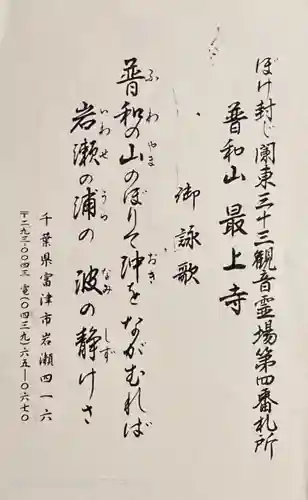 ぼけ封じ関東三十三観音霊場第四番札所
普和山 最上寺
御詠歌
普和の山のぼりて沖をながむれば
ふわ やま おき
岩瀬の浦の 波の静けさ
いわせ うら なみ しず
千葉県富津市岩瀬四一六
〒二九三-〇〇四三 電(〇四三九)六五-〇六七〇